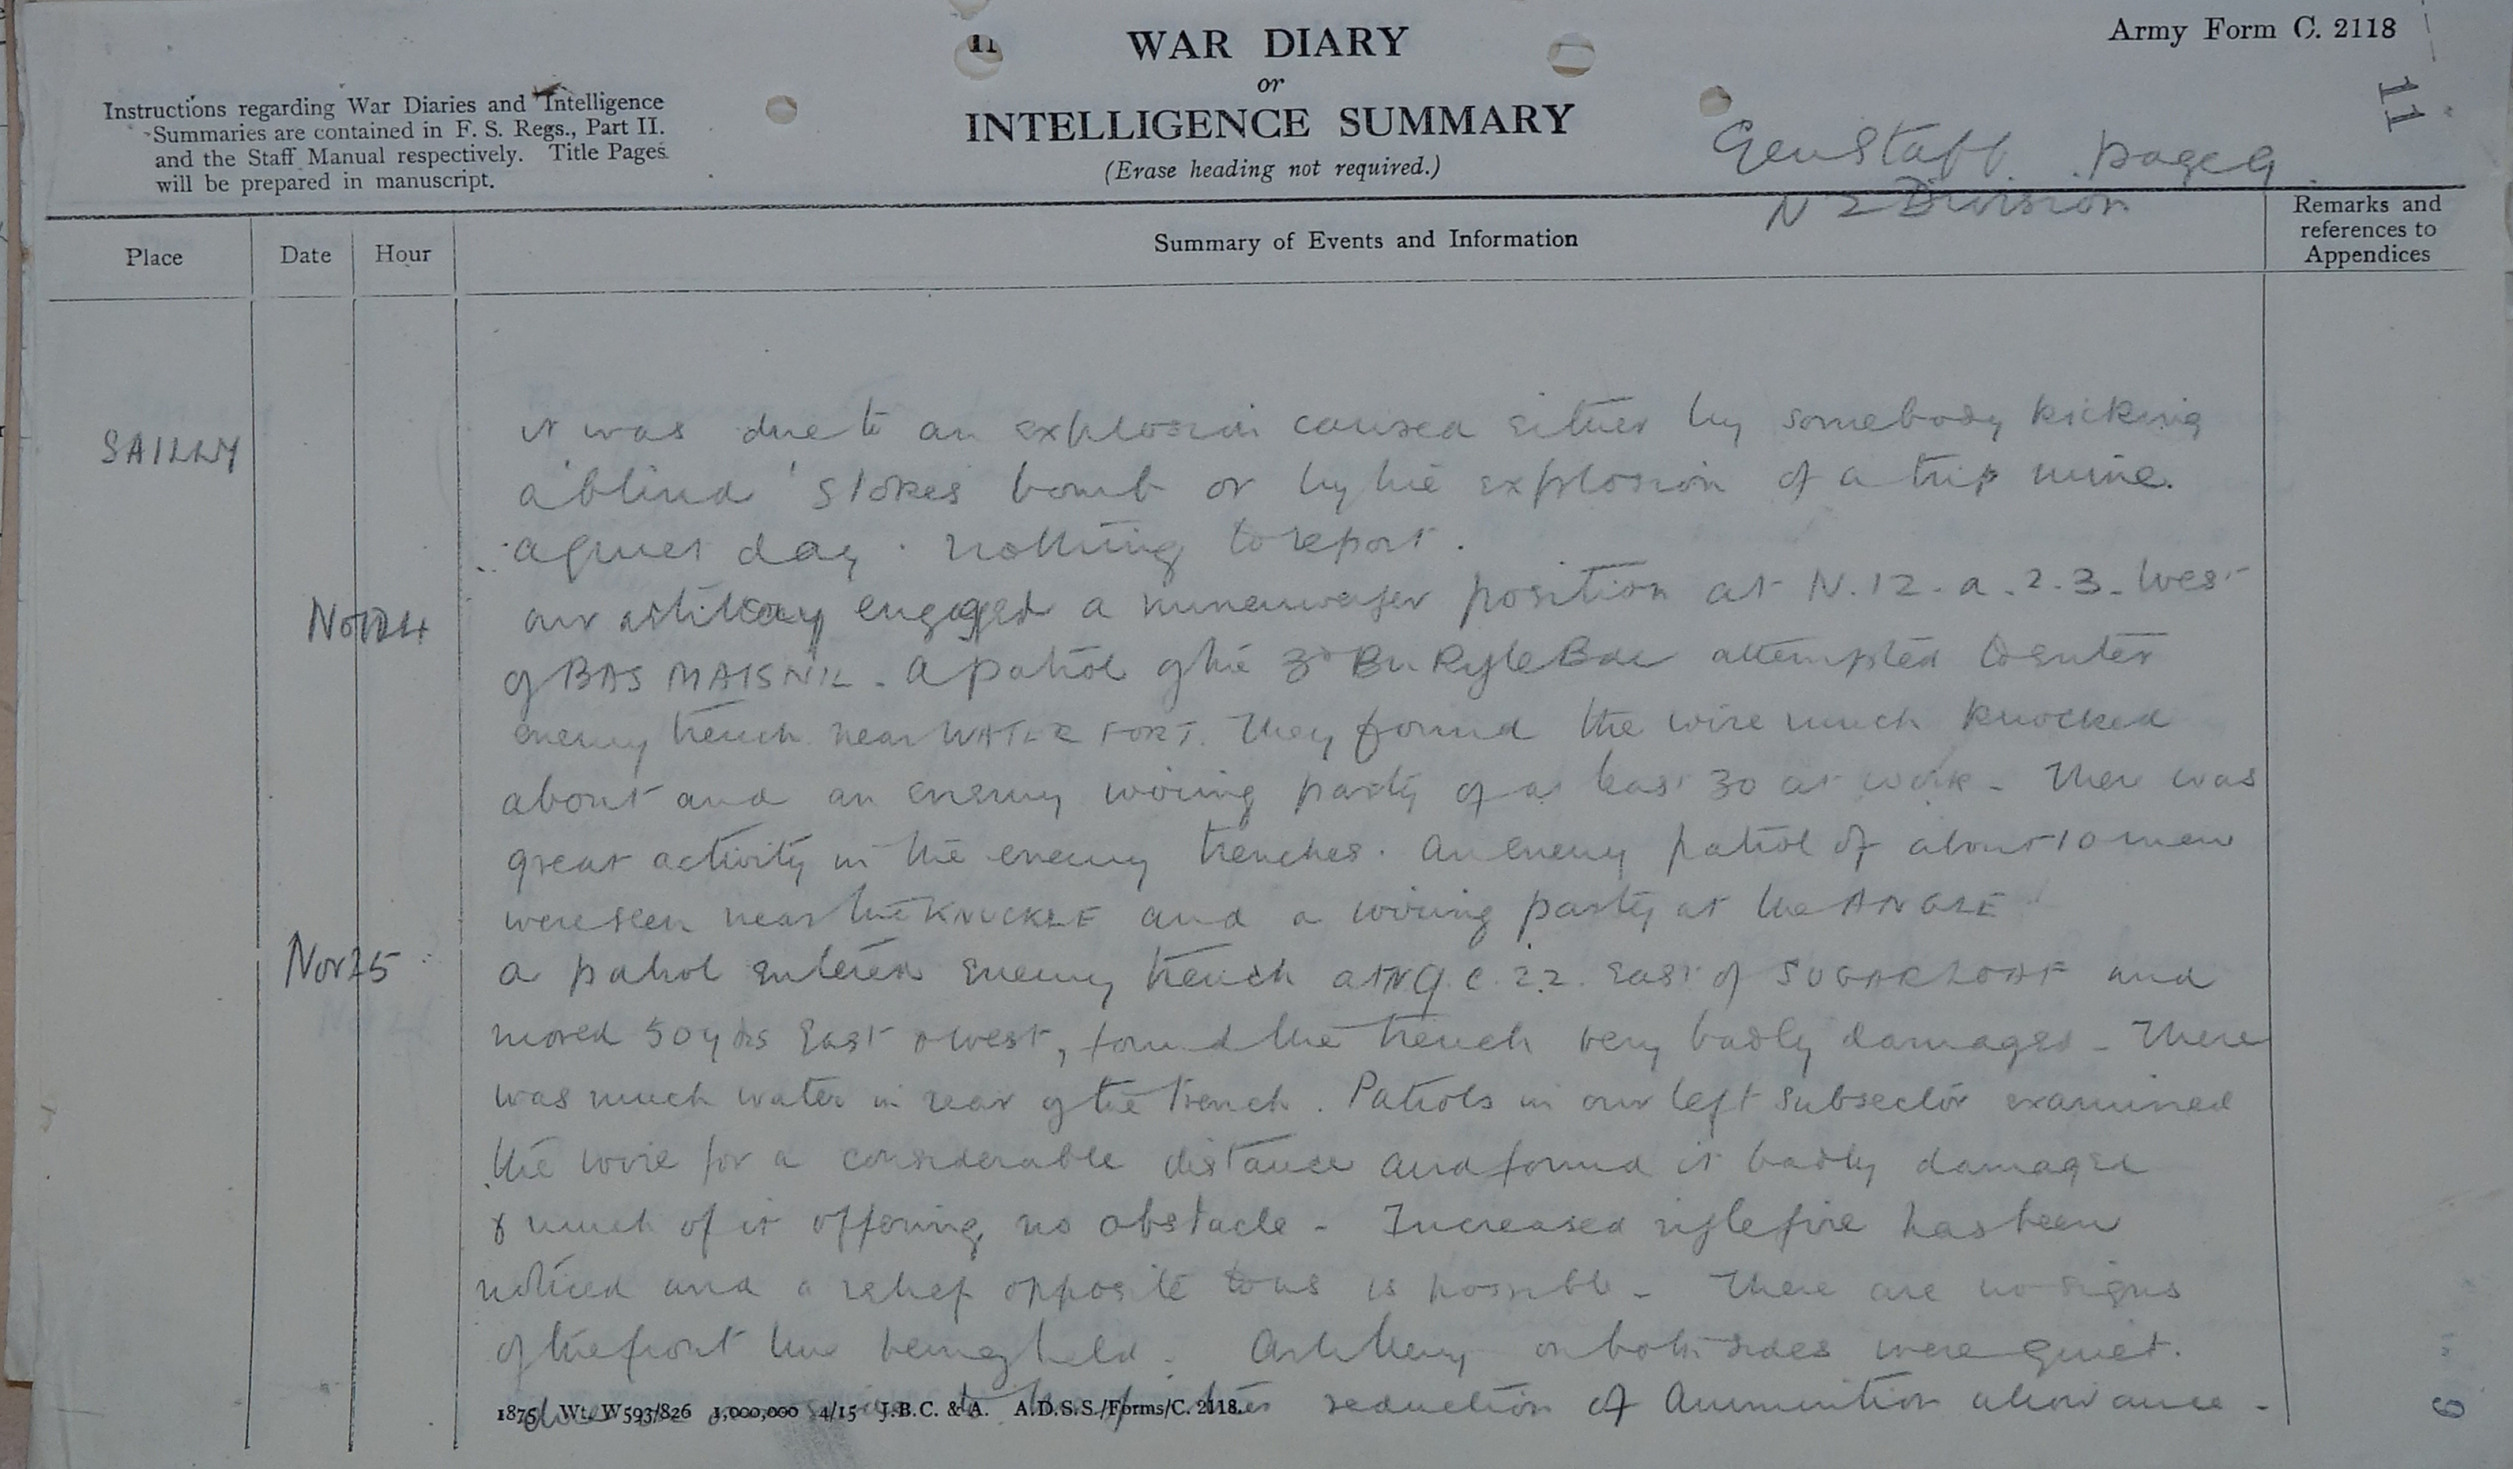 Army Form C. 2118
11
WAR DIARY
or
INTELLIGENCE SUMMARY
(Erase heading not required.)
11
Instructions regarding War Diaries and Intelligence
Summaries are contained in F. S. Regs., Part II.
and the Staff Manual respectively. Title Pages
will be prepared in manuscript.
Gen Staff. page 9.
N Z Division
Place
Date
Hour
Summary of Events and Information
Remarks and
references to
Appendices
SAILLY
it was due to an explosion caused either by somebody kicking
a 'blind' Stokes bomb or by the explosion of a trip mine.
a quiet day. nothing to report.
Nov 24
our artillery engaged a minenwerfer position at N.12.a.2.3. West
of BAS MAISNIL - a patrol of the 3d Bn Rifle Bde attempted to enter
enemy trench near WATER FORT. They found the wire much knocked
about and an enemy wiring party of at least 30 at work - There was
great activity in the enemy trenches. An enemy patrol of about 10 men
were seen near the KNUCKLE and a wiring party at the ANGLE
Nov 25
a patrol entered enemy trench at N 9. c. 2.2. East of SUGARLOAF and
moved 50 yds East & West, found the trench very badly damaged - There
was much water in rear of the trench. Patrols in our left subsector examined
the wire for a considerable distance and found it badly damaged
& much of it offering no obstacle - Increased rifle fire has been
noticed and a relief opposite to us is possible - There are no signs
of the front line being held. Artillery on both sides were quiet.
reduction of Ammunition allowance -
1875 Wt. W593/826 1,000,000 4/15 J.B.C. & A. A.D.S.S./Forms/C. 2118.
9